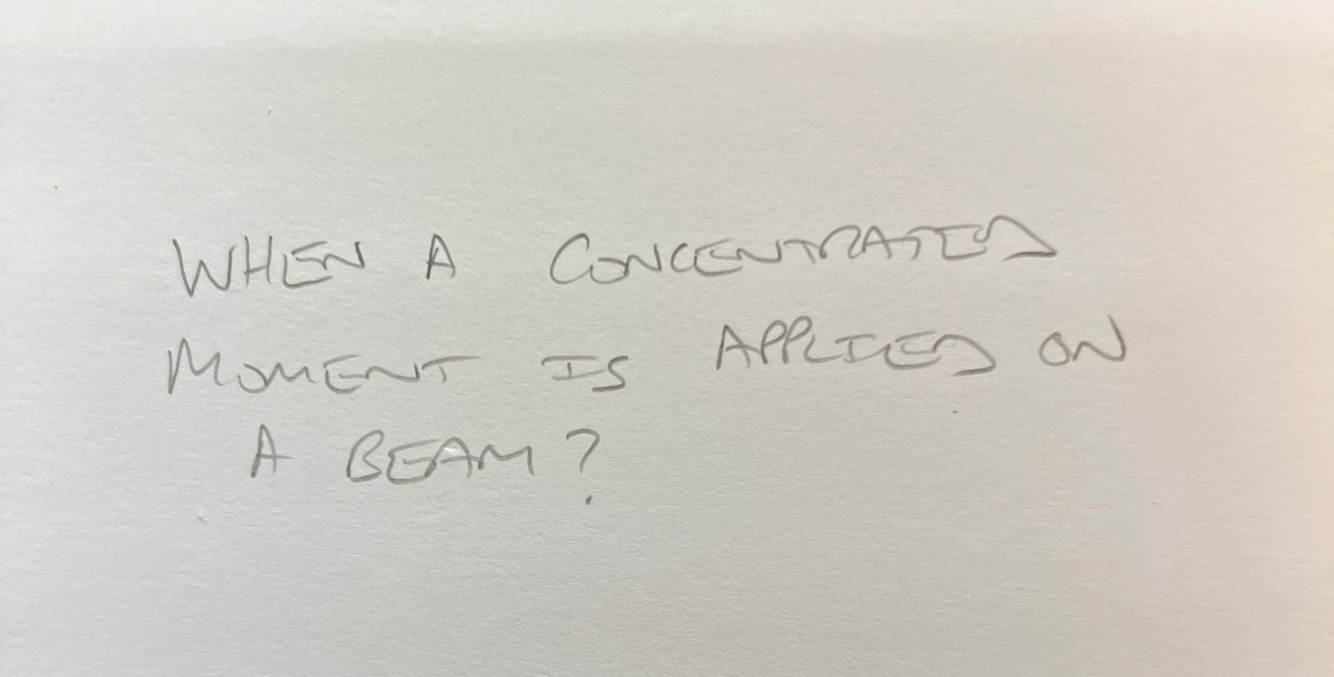 WHEN A CONCENTRATED
MOMENT IS APPLIED ON
A BEAM?